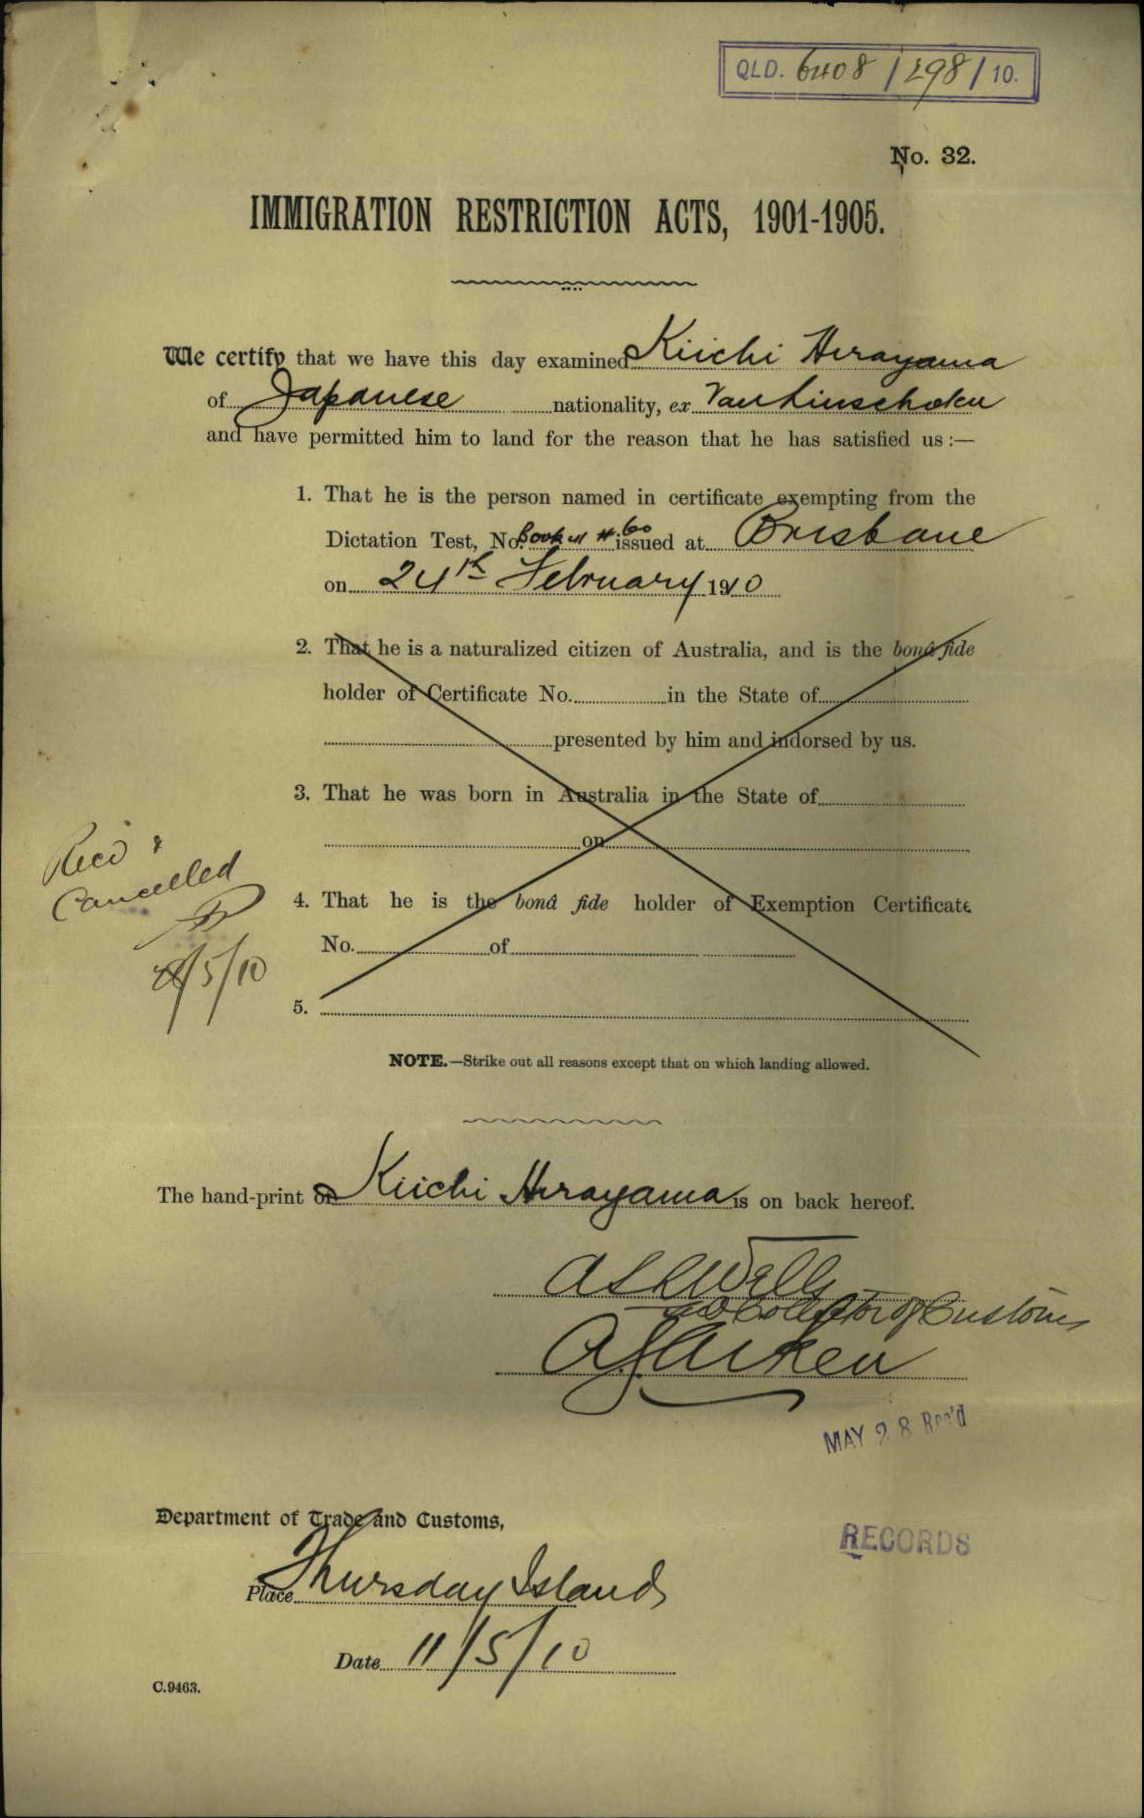 QLD. 6408 / 298 / 10.
No. 32.
IMMIGRATION RESTRICTION ACTS, 1901-1905.
We certify that we have this day examined Kiichi Hirayama
of Japanese nationality, ex Van Linschoten
and have permitted him to land for the reason that he has satisfied us :—
1. That he is the person named in certificate exempting from the
Dictation Test, No. Book # 60 issued at Brisbane
on 24th February 1910
2. That he is a naturalized citizen of Australia, and is the bonâ fide
holder of Certificate No. in the State of
presented by him and indorsed by us.
3. That he was born in Australia in the State of
on
Recd &
Cancelled
4. That he is the bonâ fide holder of Exemption Certificate
No. of
/5/10
5.
NOTE.—Strike out all reasons except that on which landing allowed.
The hand-print of Kiichi Hirayama is on back hereof.
Wells
Collector of Customs
Aiken
MAY 28 Rec'd
Department of Trade and Customs,
RECORDS
Place Thursday Island
Date 11/5/10
C.9463.